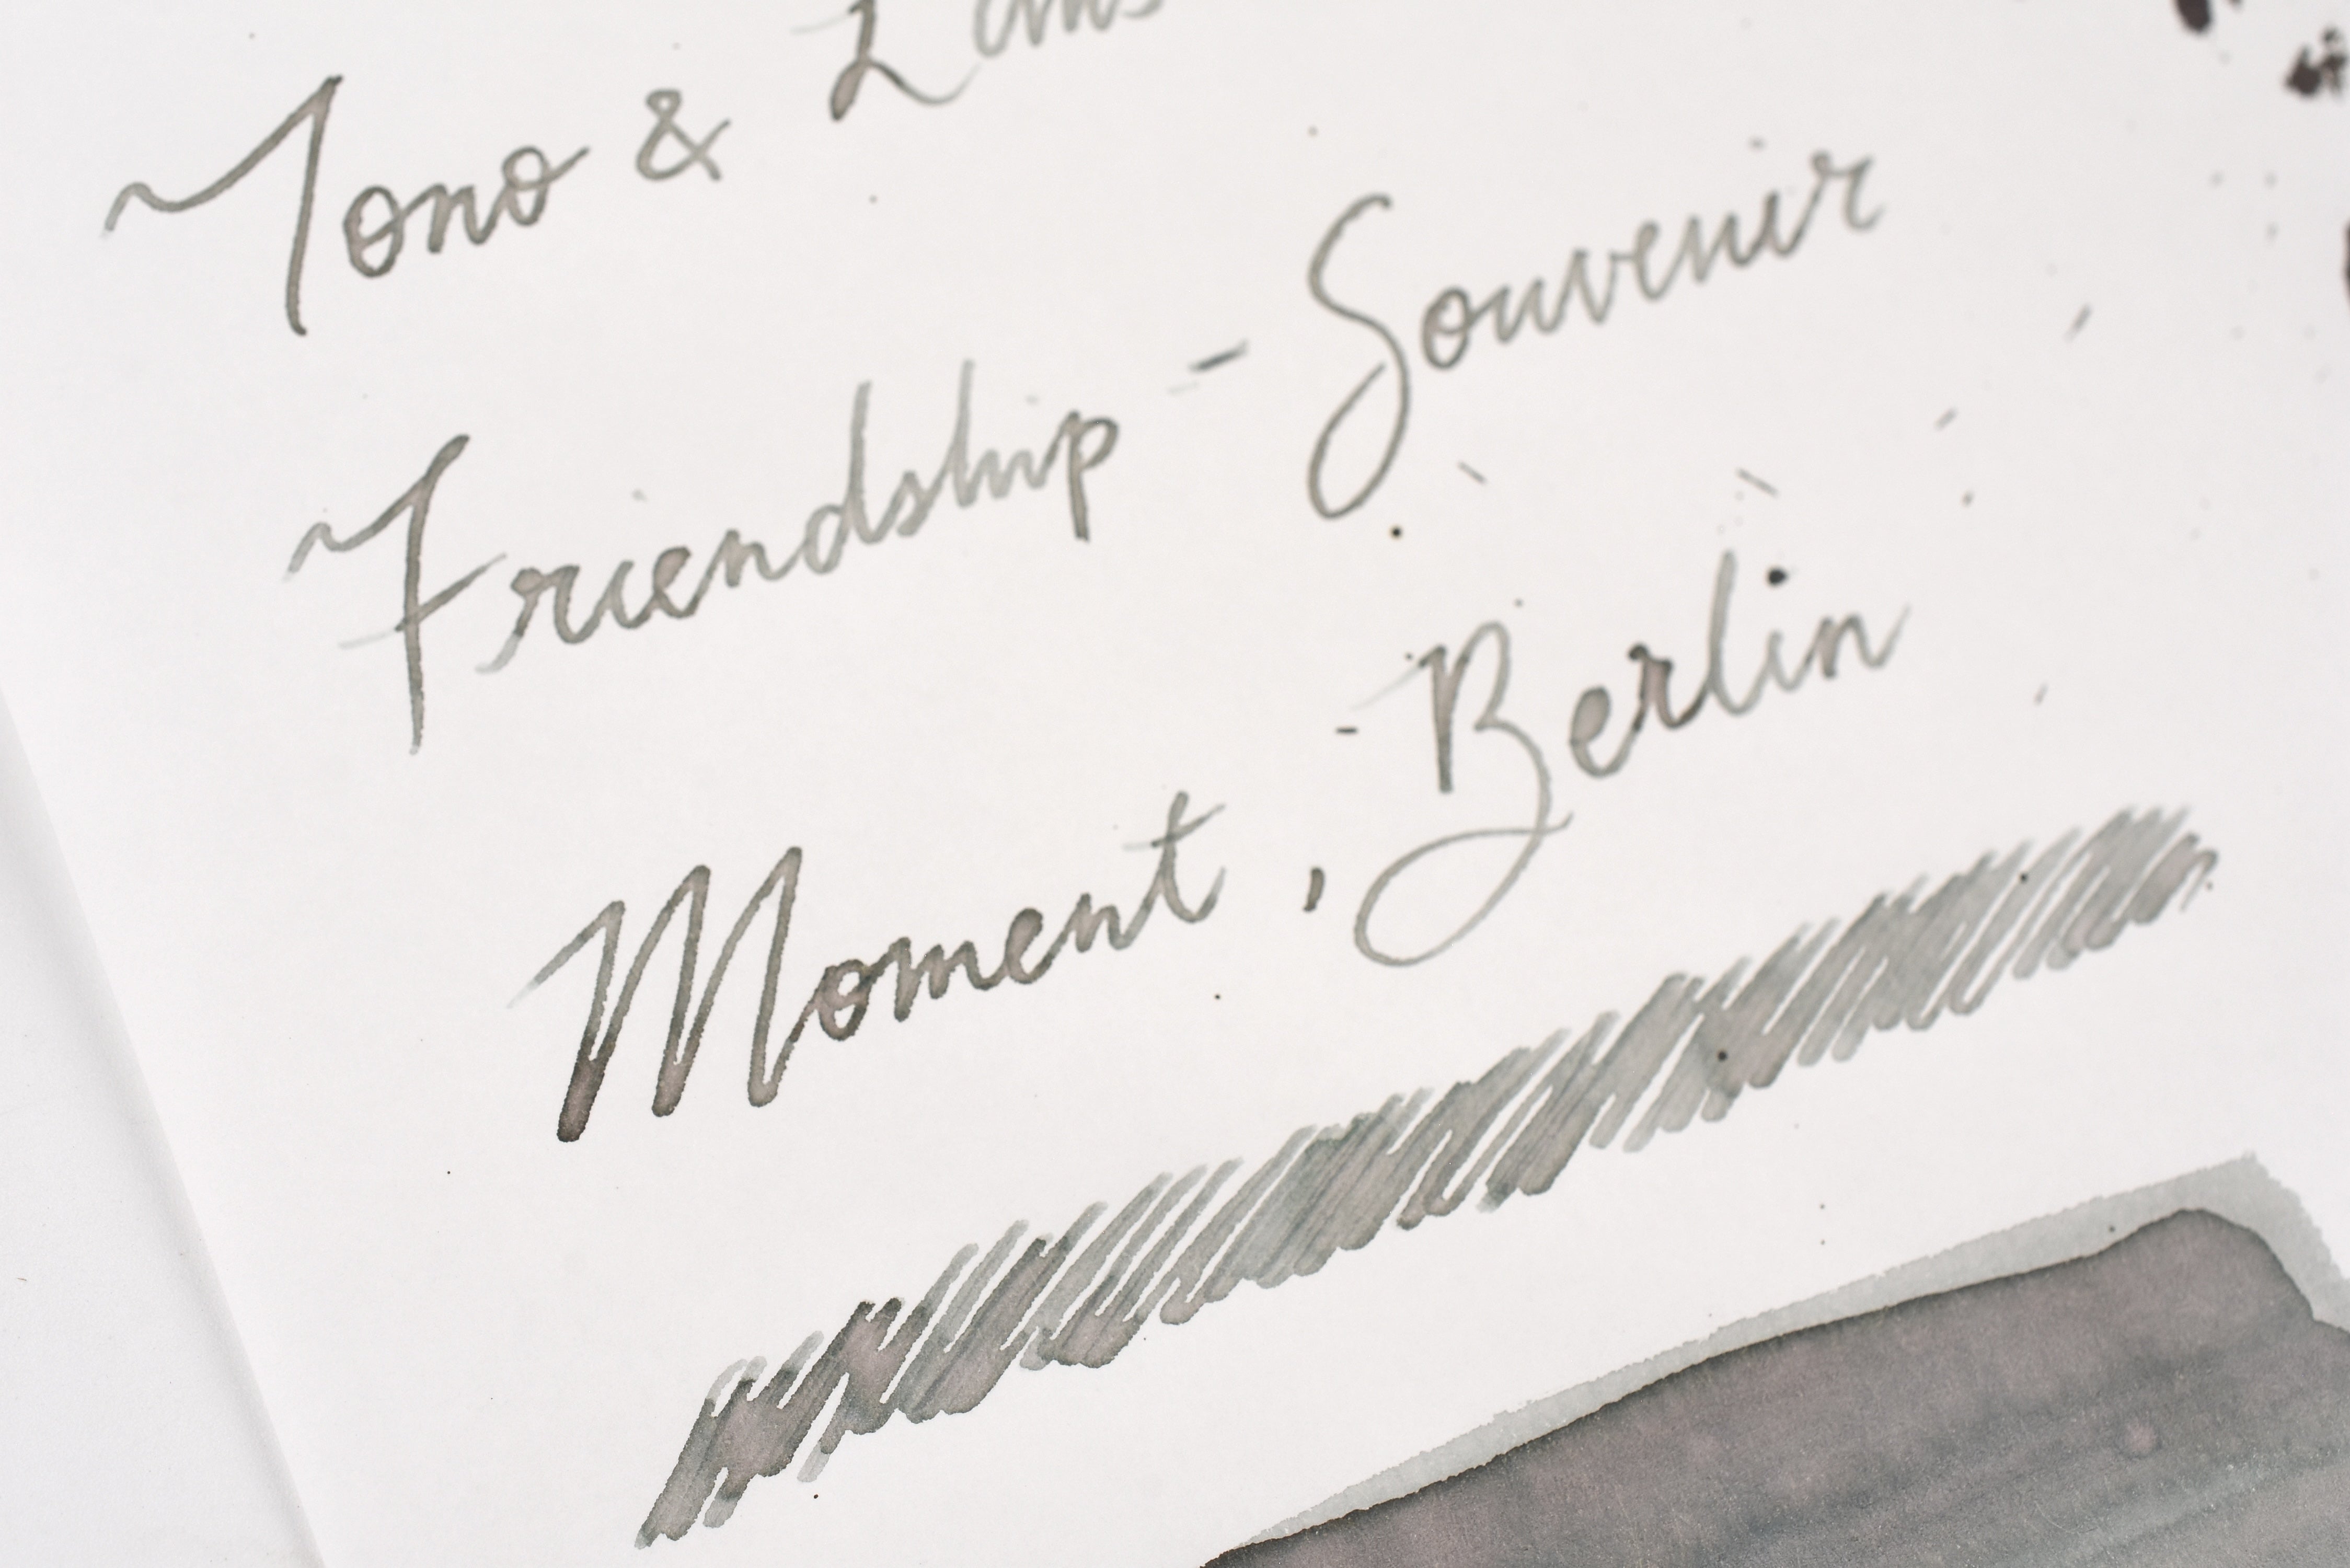 Tono & Lims
Friendship - Souvenir
Moment, - Berlin